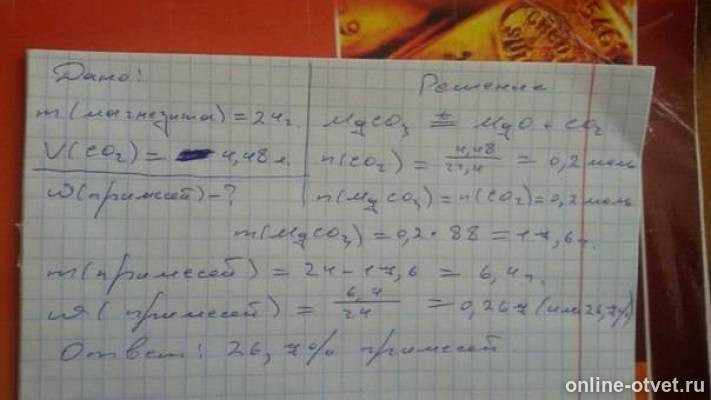 Дано!
m(магнезита) = 24г.
V(CO2) = 4,48л.
ω(примесей) - ?
Решение
MgCO3 t= MgO + CO2
n(CO2) = 4,48/22,4 = 0,2 моль
n(MgCO3) = n(CO2) = 0,2 моль
m(MgCO3) = 0,2 * 88 = 17,6г.
m(примесей) = 24 - 17,6 = 6,4г.
ω(примесей) = 6,4/24 = 0,267 (или 26,7%)
Ответ! 26,7% примесей.
online-otvet.ru